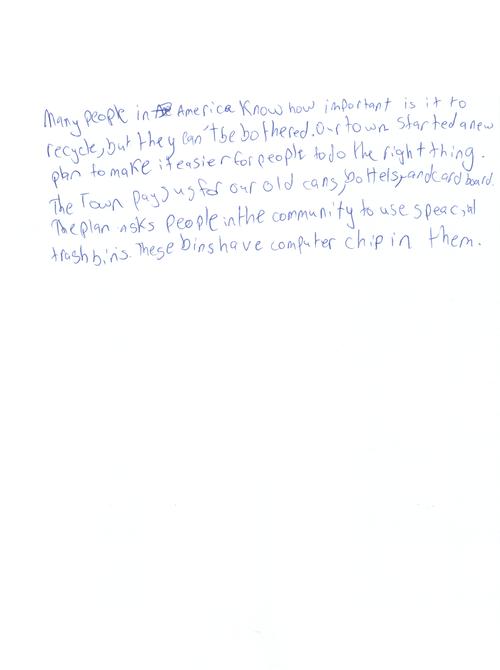 Many people in America Know how important is it to
recycle, but they can't be bothered. Our town started a new
plan to make it easier for people to do the right thing.
The Town pays us for our old cans, bottels, and card board.
The plan asks people in the community to use speacial
trash bins. These bins have computer chip in them.